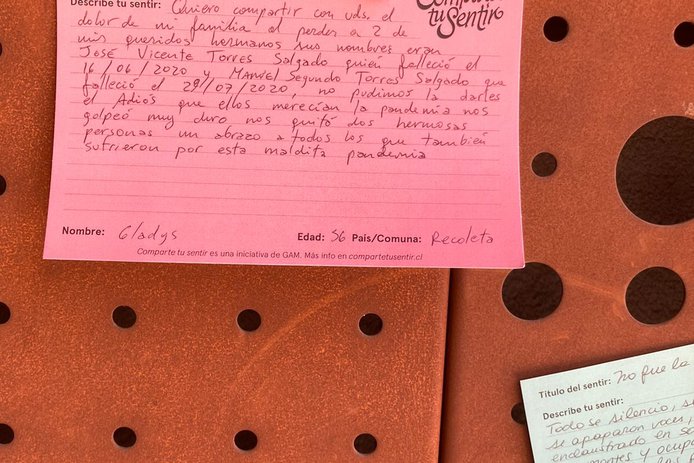 Describe tu sentir: Quiero compartir con uds. el
dolor de mi familia al perder a 2 de
mis queridos hermanos sus nombres eran
José Vicente Torres Salgado quién falleció el
16/06/2020 y Manuel Segundo Torres Salgado que
falleció el 29/07/2020, no pudimos la darles
el Adiós que ellos merecían la pandemia nos
golpeó muy duro nos quitó dos hermosas
personas un abrazo a todos los que también
sufrieron por esta maldita pandemia
Comparte
tu Sentir
Nombre: Gladys
Edad: 56 País/Comuna: Recoleta
Comparte tu sentir es una iniciativa de GAM. Más info en compartetusentir.cl
Título del sentir: no que la
Describe tu sentir:
Todo se silencio, s
se apagaron voces,
enclaustrado en s
montes y ocup